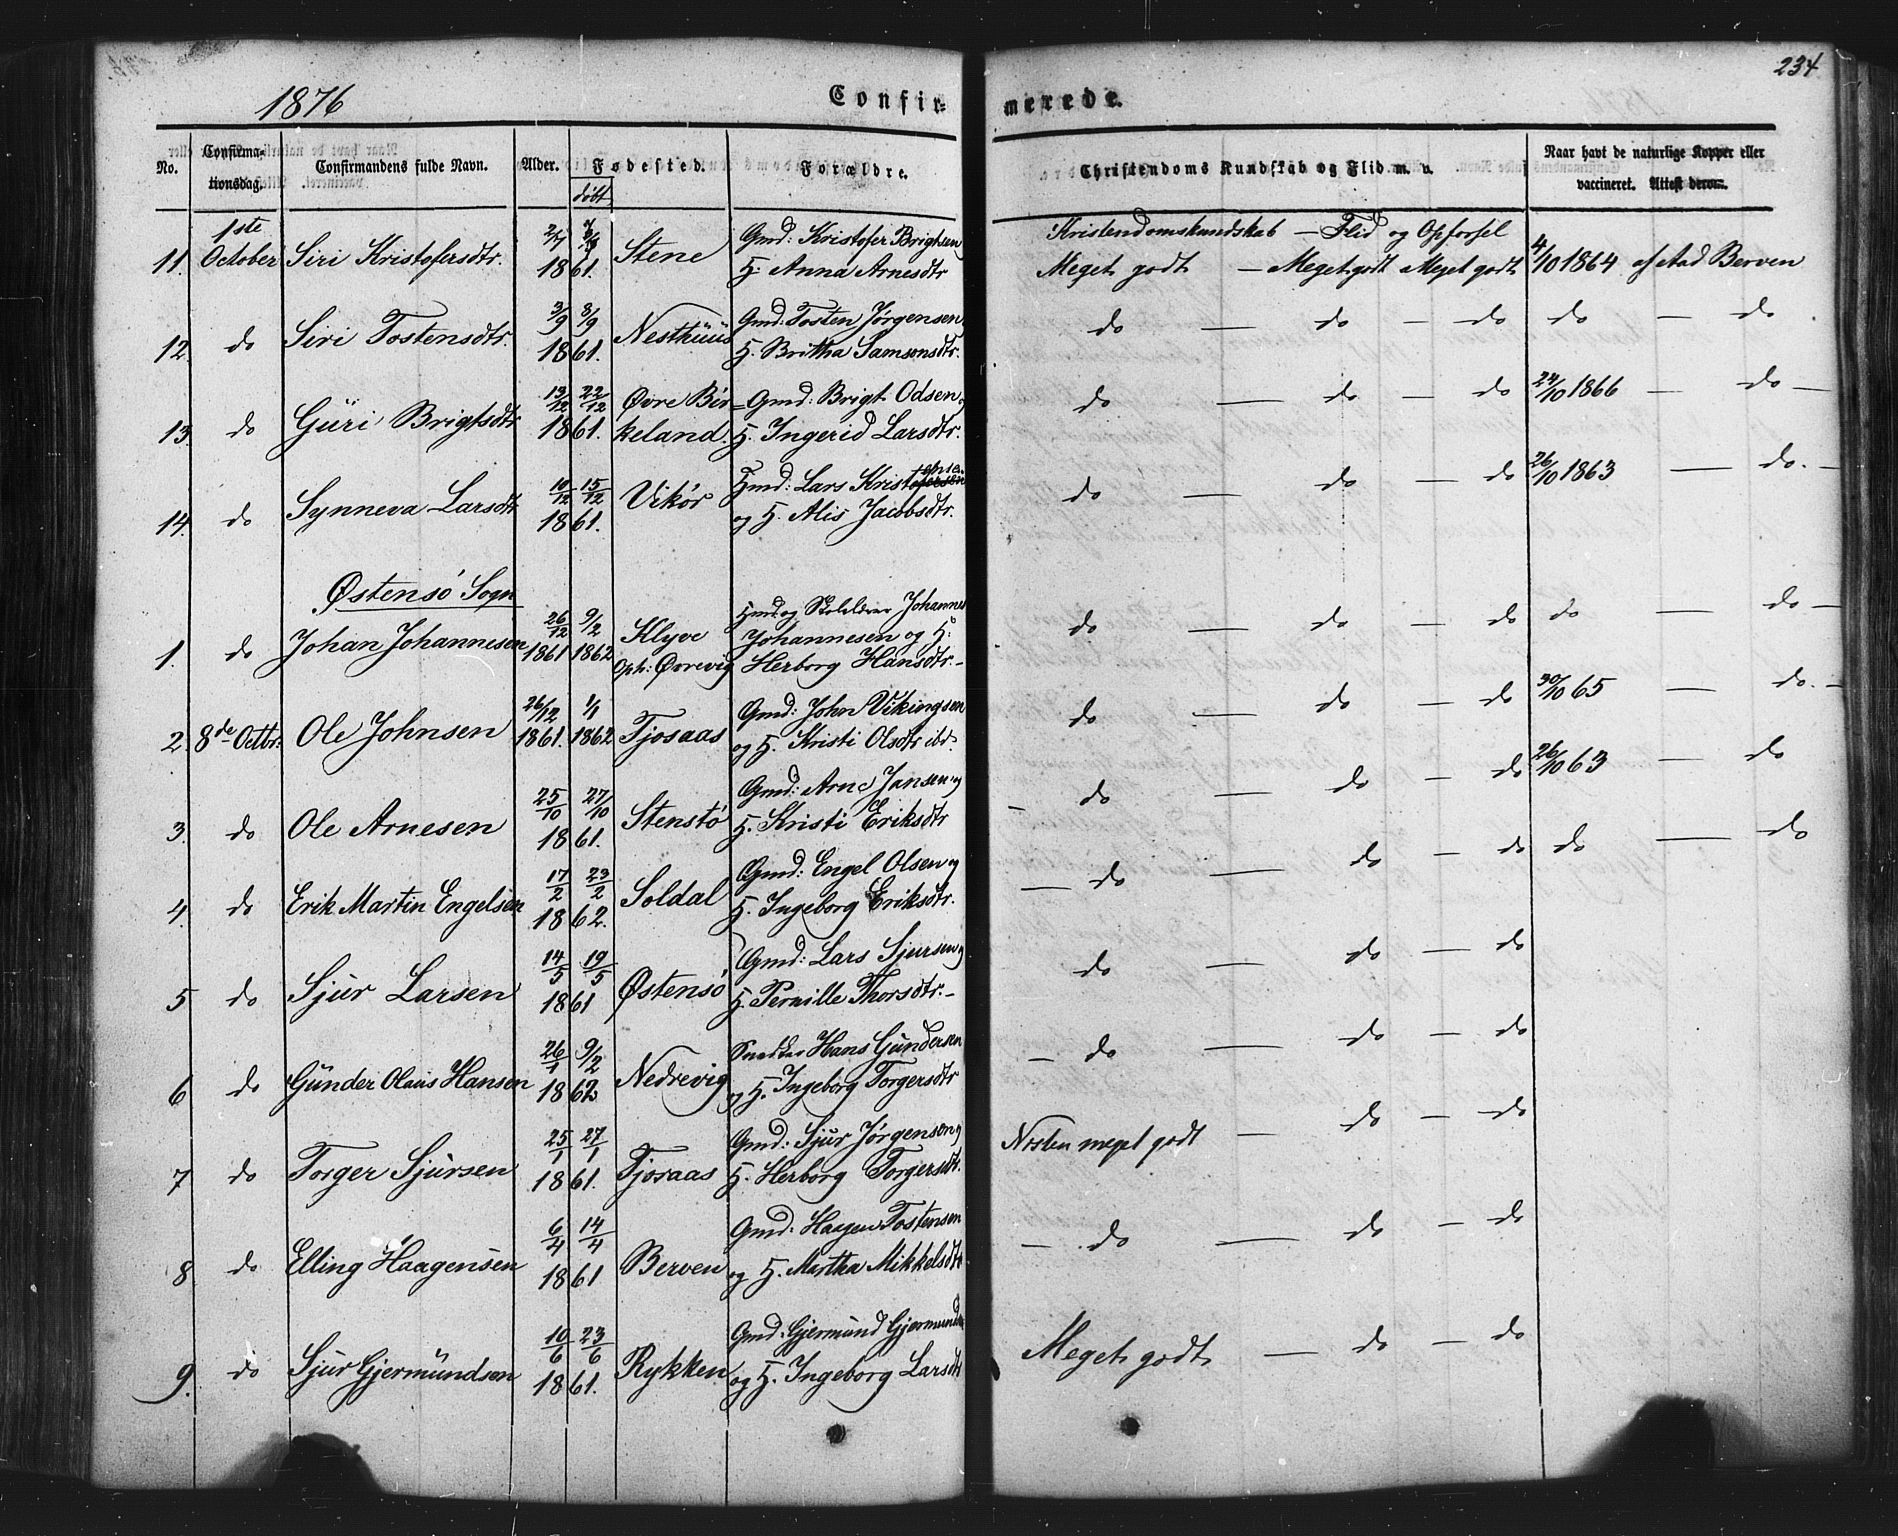 234
1876
Confir- merede.
No. Confirmationsdag. Confirmandens fulde Navn. Alder. Fødested. Forældre. Christendoms Kundskab og Flid m. v. Naar havt de naturlige Kopper eller vaccineret. Attest derom.
døbt
1ste Kristendomskundskab — Flid og Opførsel
11. October Siri Kristofersdtr. 2/7 1861. Stene Gmd: Kristofer Brigtsen
H. Anna Arnesdtr Meget godt — Meget godt Meget godt 4/10 1864 af Aad Berven
12. do Siri Tostensdtr. 3/9 8/9 1861. Nesthuus Gmd. Tosten Jørgensen
H. Britha Samsonsdtr. do — do — do do — do
13. do Guri Brigtsdtr 13/12 22/12 1861. Øvre Birkeland. Gmd: Brigt Odsen
H. Ingerid Larsdtr. do — do — do 24/10 1866 — do —
14. do Synneva Larsdtr 10/12 15/12 1861. Vikør Hmd: Lars Kristofersen
og H. Alis Jacobsdtr. do — do — do 26/10 1863 — do. —
Østensö Sogn
1. do Johan Johannesen 26/12 1861 9/2 1862 Klyve Oph: Øvrevig Hmd og Skolelærer Johannes
Johannesen og H:
Herborg Hansdtr. — do — do — do do — do —
2. 8de Octbr. Ole Johnsen 26/12 1861. 1/1 1862 Tjosaas Gmd: John Vikingsen
og H. Kristi Olsdtr ibd. do — do — do 30/10 65 — do. —
3. do Ole Arnesen 25/10 27/10 1861. Stenstö Gmd: Arne Jansen og
H. Kristi Eriksdtr — do — do — do 26/10 63 — do
4. do Erik Martin Engelsen 17/2 23/2 1862. Soldal Gmd: Engel Olsen og
H. Ingeborg Eriksdtr. — do — do — do do — do
5 do Sjur Larsen 14/5 19/5 1861 Østensö Gmd: Lars Sjursen og
H. Pernille Thorsdtr. — do — do — do
6 do Gunder Olaus Hansen 26/1 9/2 1862 Nedrevig Snedker Hans Gundersen
og H. Ingeborg Torgersdtr — do — do — do
7 do Torger Sjursen 25/1 27/1 1861. Tjosaas Gmd: Sjur Jørgensen og
H. Herborg Torgersdtr. Næsten meget godt — do — do
8 do Elling Haagensen 6/4 14/4 1861 Berven Gmd. Haagen Tostensen
og H. Martha Mikkelsdtr — do — do — do
9. do Sjur Gjermundsen 10/6 23/6 1861. Rykken Gmd. Gjermund Gjermundsen
og H. Ingeborg Larsdtr Meget godt — do — do